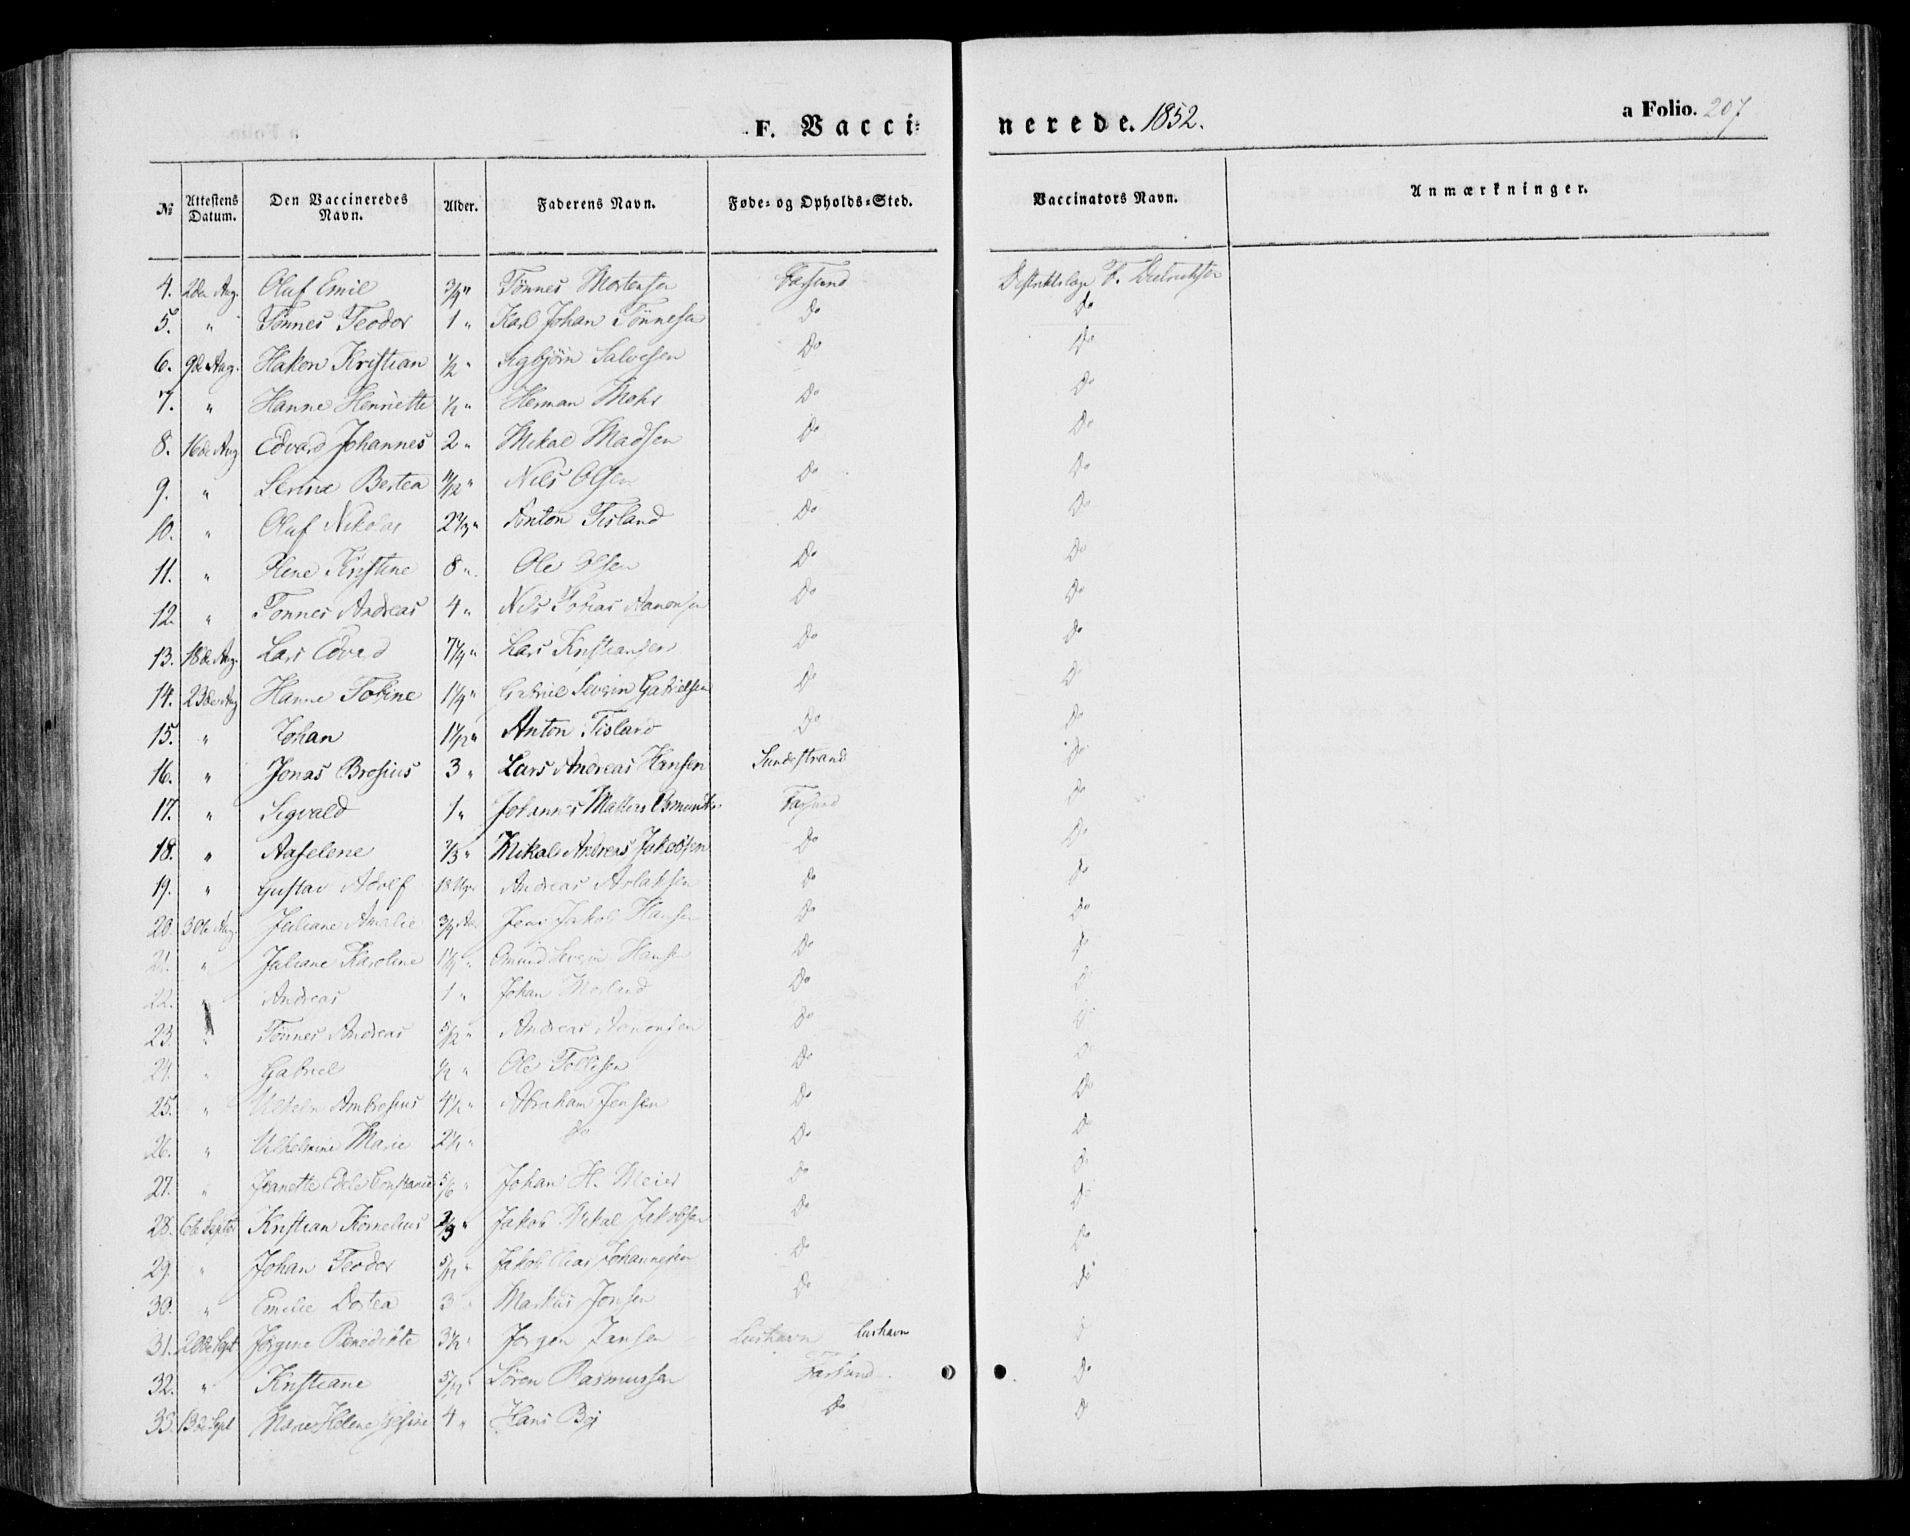 F. Vaccinerede. 1852.
a Folio. 207
№ Attestens Datum. Den Vaccineredes Navn. Alder. Faderens Navn. Føde- og Opholds-Sted. Vaccinators Navn. Anmærkninger.
4. 2den Aug. Oluf Emil 3/4 " Tønnes Mortensen Farsund Distriktslæge F.
5. " Tønnes Teodor 1 " Karl Johan Tønnesen Do Do
6. 9de Aug. Hakon Kristian 1/2 " Sigbjørn Salvesen Do Do
7. " Hanne Henriette 1/2 " Herman Mohr Do Do
8. 16de Aug Edvard Johannes 2 " Mikal Madsen Do Do
9. " Serine Bertea 11/12 " Nils Olsen Do Do
10. " Oluf Nikolai 2 2/3 " Anton Tisland Do Do
11. " Kristine 8 " Ole Olsen Do Do
12. " Tønnes Andreas 4 " Nils Tobias Aanonsen Do Do
13. 18de Aug. Lars Edvard 7 1/4 " Lars Kristiansen Do Do
14. 23de Aug Hanne Tobine 1 1/4 " Gabriel Severin Gabrielsen Do Do
15. " Johan 1 1/12 " Anton Tisland Do Do
16. " Jonas Brosius 3 " Lars Andreas Hansen Sundestrand Do
17. " Sigvald 1 " Johannes Mathias Farsund Do
18. " Aaselene 2/3 " Mikal Andreas Jakobsen Do Do
19. " Gustav Adolf 18 Ugr Andreas Aslaksen Do Do
20. 30te Aug. Juliane Amalie 3/4 Aar Jens Jakob Hansen Do Do
21. " Juliane Karoline " Omund Severin Hansen Do Do
22. " Andreas 1 " Johan Do Do
23. " Tønnes Andreas 5/12 " Andreas Aanonsen Do Do
24. " Gabriel 1/2 " Ole Tollefsen Do Do
25. " Vilhelm Ambrosius 4 1/2 " Abraham Jensen Do Do
26. " Vilhelmine Marie 2 1/2 " Do Do Do
27. " Jeanette Edele Constance 5/6 " Johan H. Meier Do Do
28. 6te Septbr Kristian Kornelius 2/3 " Jakob Mikal Jakobsen Do Do
29. " Johan Teodor 5/12 " Jakob Elias Johannesen Do Do
30. " Emilie Dortea 3 " Markus Jensen Do Do
31. 20de Sept. Jørgine Benedikte 3 1/2 " Jørgen Jansen Lushavn Lushavn Do
32. " Kristiane 5/12 " Søren Rasmussen Farsund Do
33. 13de Sept Helene 4 " Hans Do Do